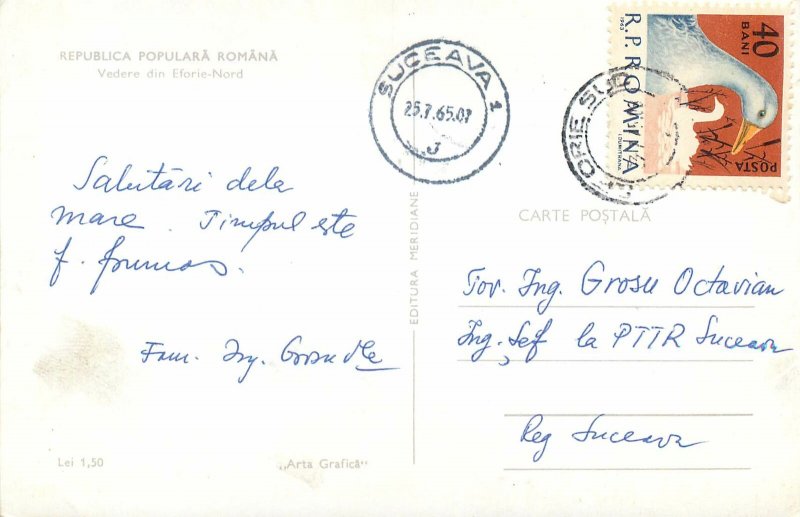 REPUBLICA POPULARĂ ROMÂNĂ
Vedere din Eforie-Nord
Salutări dela
mare. Timpul este
f. frumos.
Fam. Ing. Grosu
Lei 1,50
„Arta Grafică“
EDITURA MERIDIANE
SUCEAVA 1
25.7.65.07
EFORIE SUD
40
BANI
R.P.ROMINA
1963
POSTA
CARTE POȘTALĂ
Tov. Ing. Grosu Octavian
Ing. Șef la PTTR Suceava
Reg Suceava